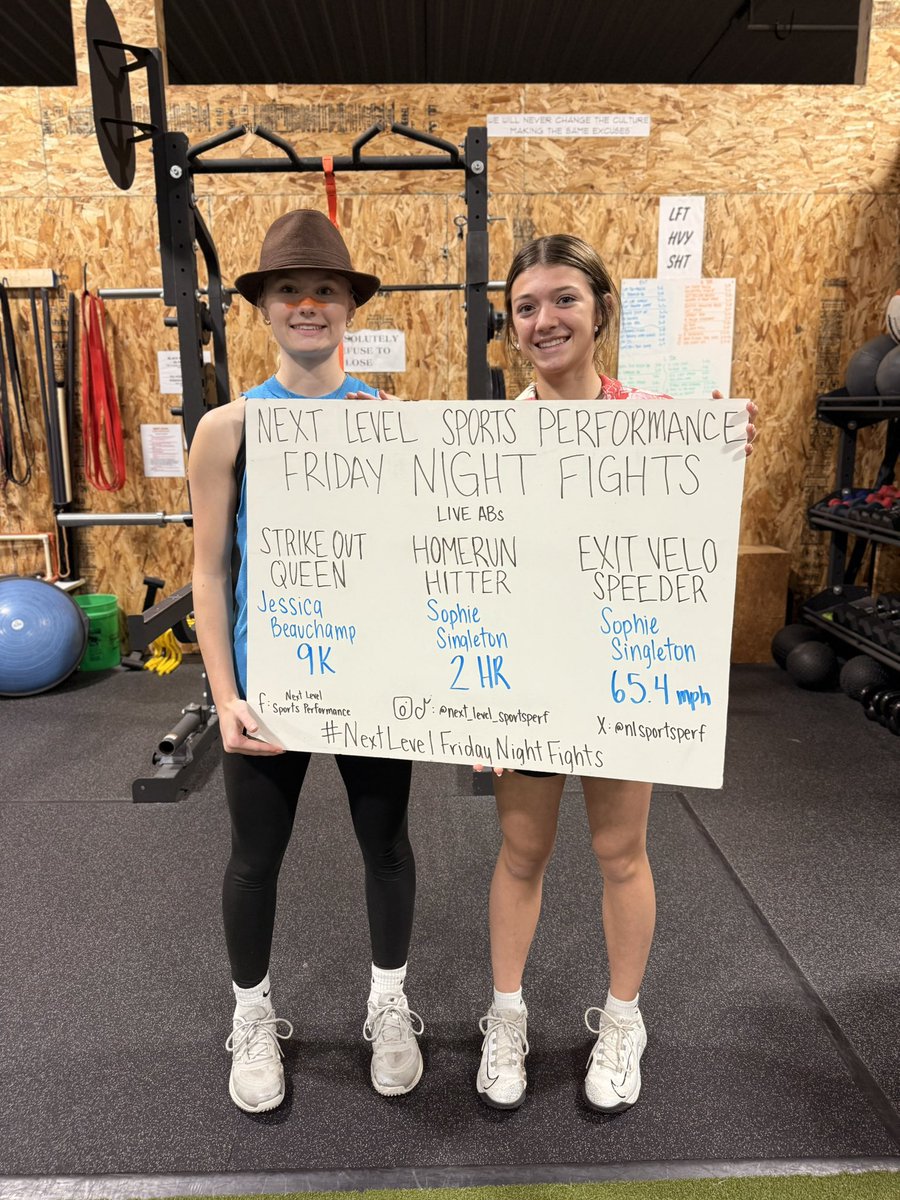 WE WILL NEVER CHANGE THE CULTURE
MAKING THE SAME EXCUSES
LFT
HVY
SHT
REFUSE TO
LOSE
NEXT LEVEL SPORTS PERFORMANCE
FRIDAY NIGHT FIGHTS
LIVE ABs
STRIKE OUT
QUEEN
Jessica
Beauchamp
9K
HOMERUN
HITTER
Sophie
Singleton
2 HR
EXIT VELO
SPEEDER
Sophie
Singleton
65.4 mph
f: Next Level
Sports Performance
: @next_level_sportsperf
X: @nlsportsperf
#NextLevelFridayNightFights